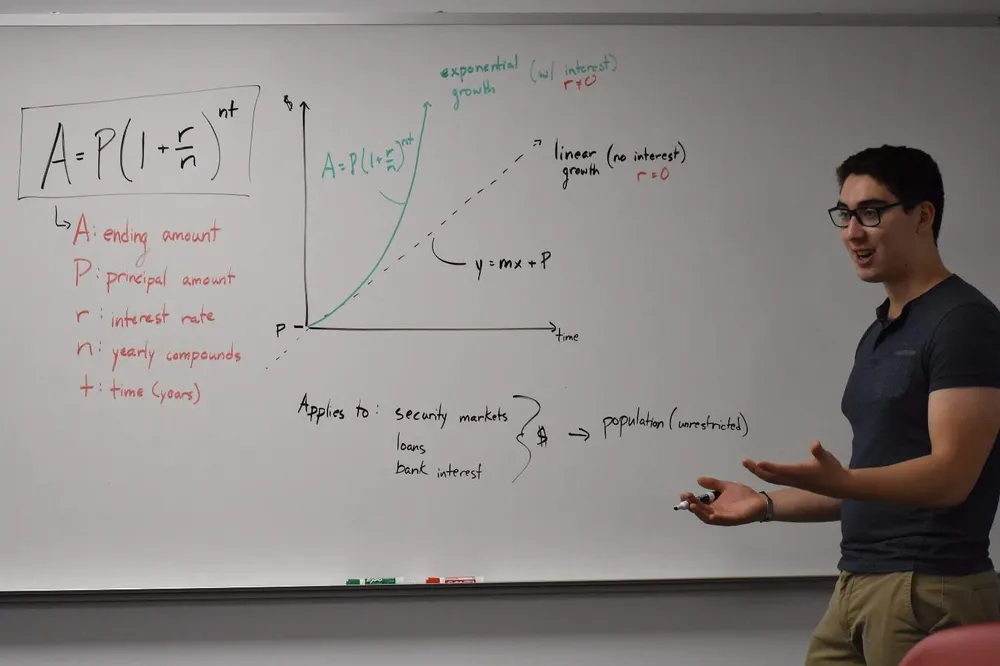 A = P(1 + r/n)^nt
A: ending amount
P: principal amount
r: interest rate
n: yearly compounds
t: time (years)
$
exponential (w/ interest)
growth r≠0
A = P(1 + r/n)^nt
linear (no interest)
growth r = 0
y = mx + P
P
time
Applies to: security markets
loans
bank interest
} $ → population (unrestricted)